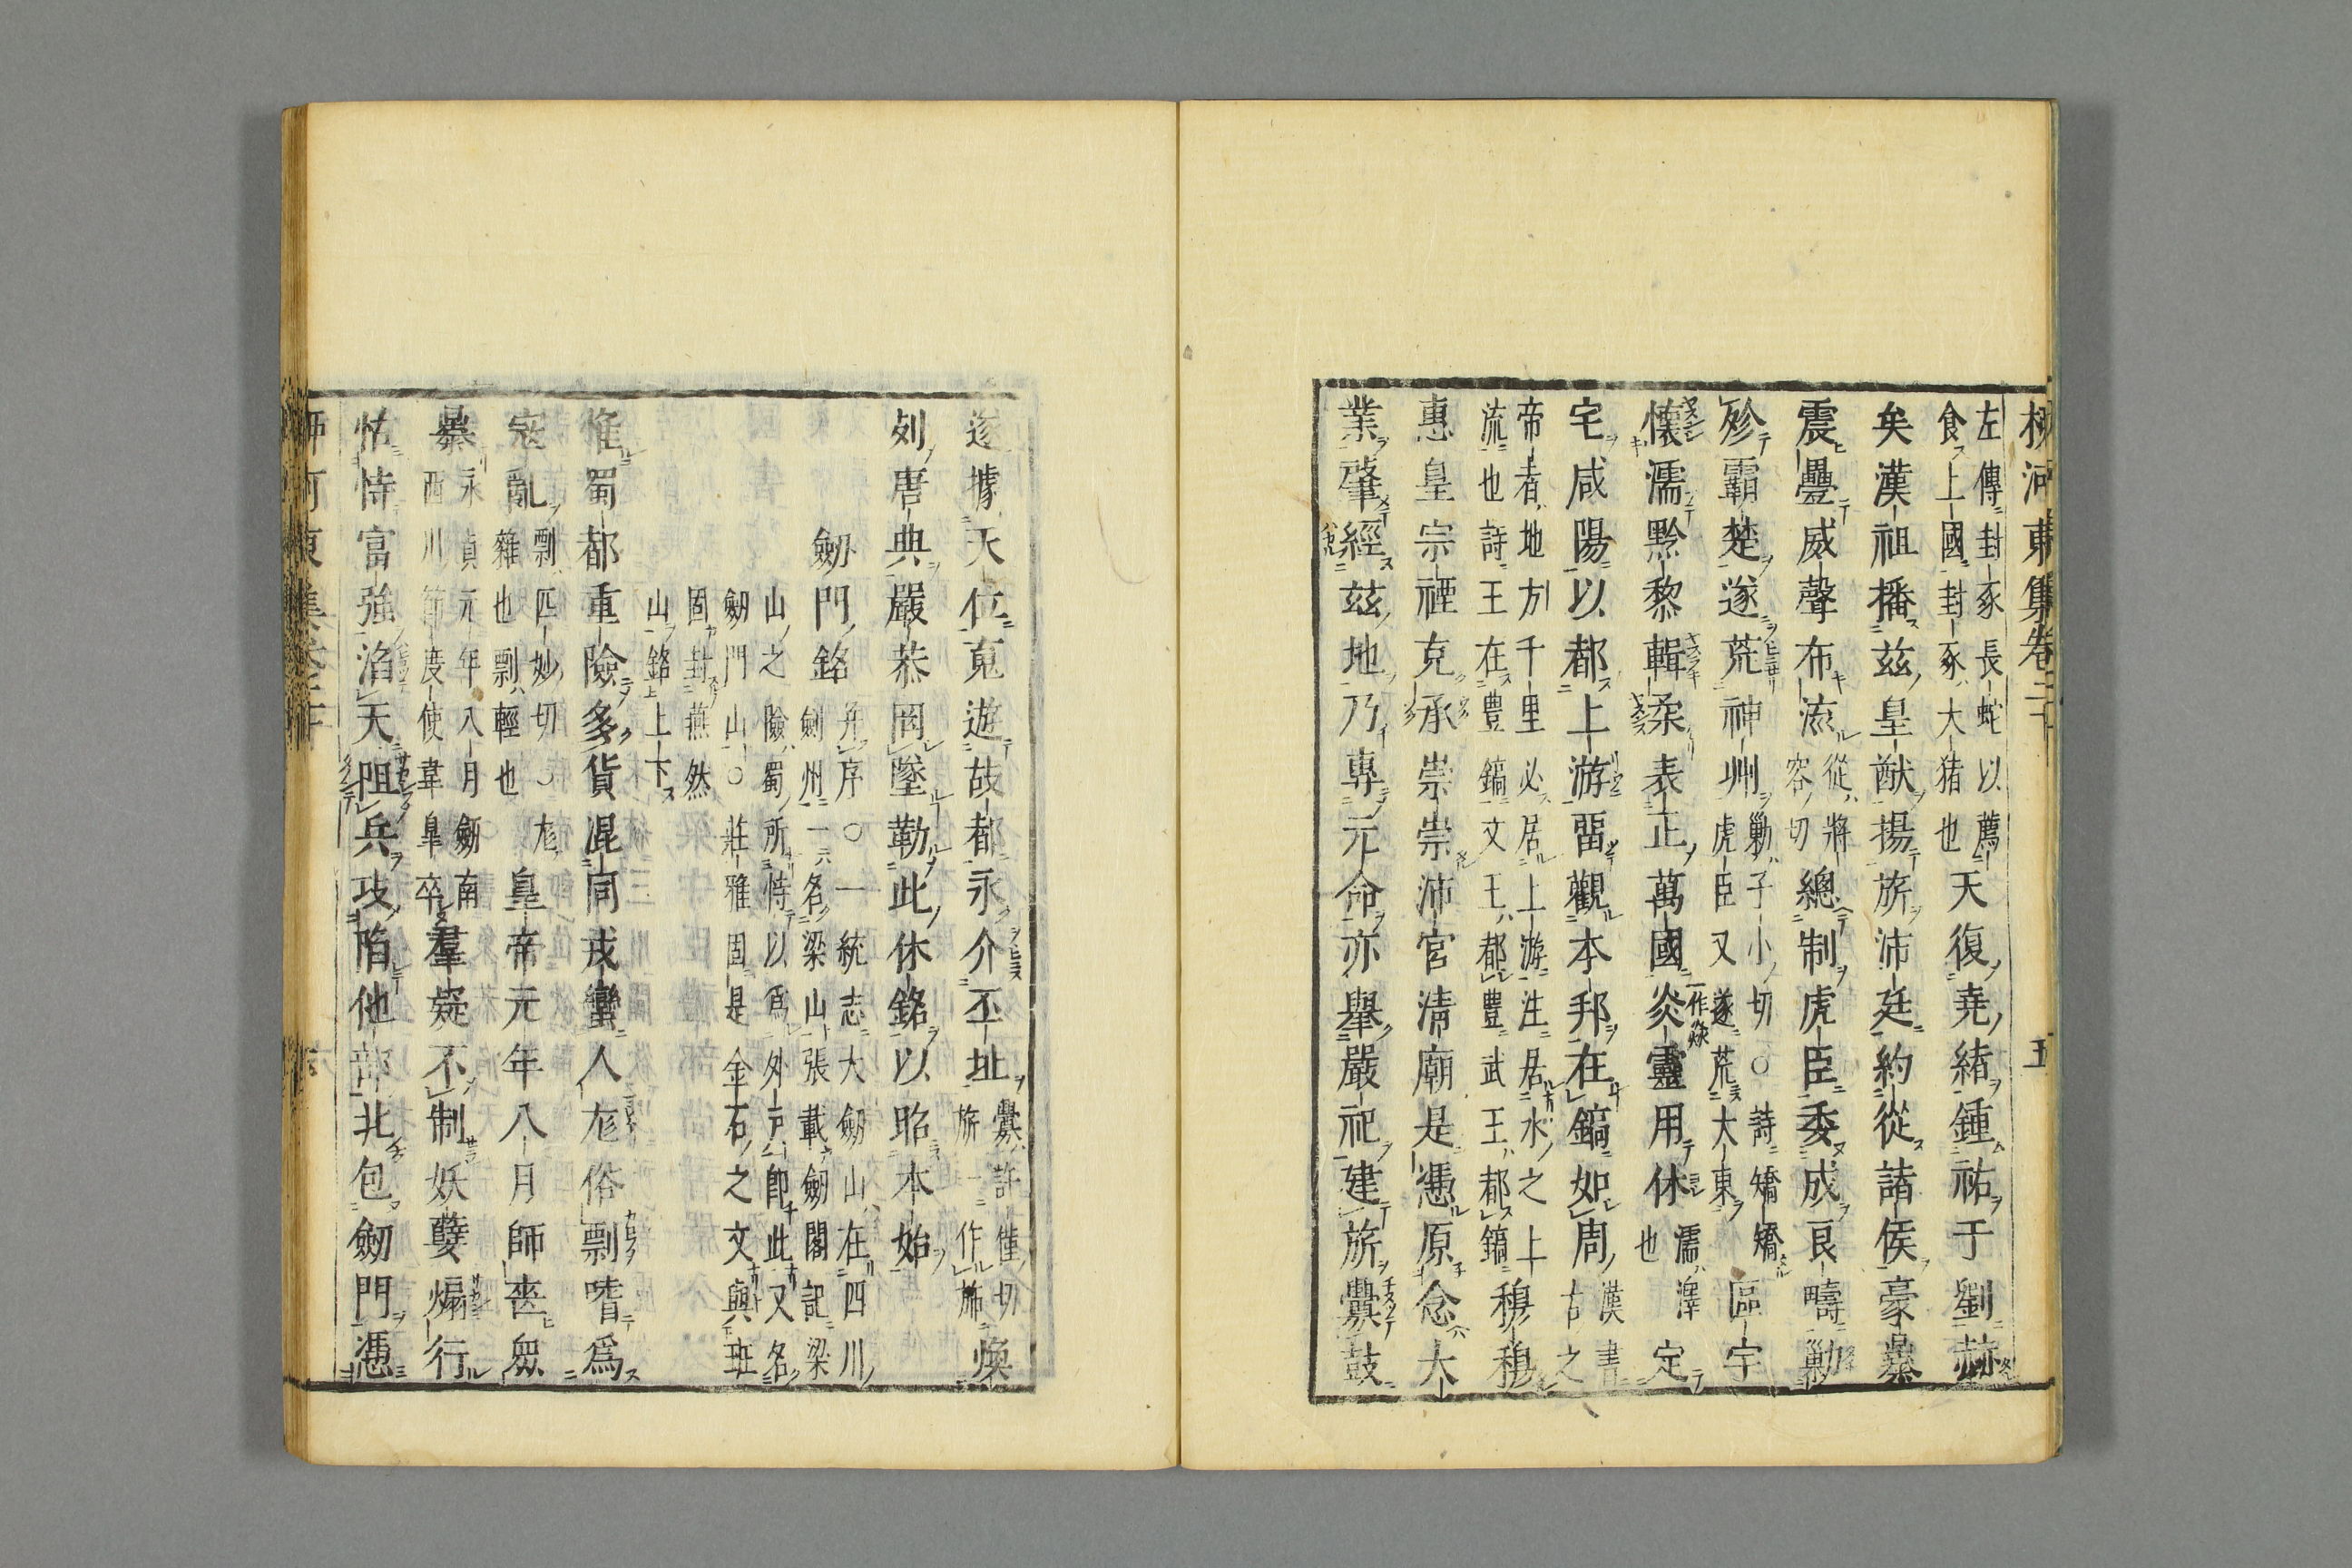 柳河東集卷二十 五
左傳封豕長蛇以薦
食上國封豕大猪也
天復堯緒鍾祐于劉赫
矣漢祖播玆皇猷揚旂沛廷約從諸侯豪暴
震疊威聲布流
從將
容切
總制虎臣委成良疇勦
殄霸楚遂荒神州
勦子小切○詩矯矯
虎臣又遂荒大東
區宇
懷濡黔黎輯柔表正萬國炎
一作焱
靈用休
濡澤
也
定
宅咸陽以都上游留觀本邦在鎬如周
漢書
古之
帝者地方千里必居上游注居水之上
流也詩王在豐鎬文王都豐武王都鎬
穆穆
惠皇宗禋克承崇崇沛宮淸廟是憑原念大
業肇經玆地乃專元命亦舉嚴祀建旂釁鼓
遂據天位寬遊故都永介丕址
釁許僅切
旂一作旆
煥
列唐典嚴恭罔墜勒此休銘以昭本始
劒門銘
并序○一統志大劒山在四川
劍州一名梁山張載劒閣記梁
山之險蜀所恃以爲外戶卽此又名
劒門山○莊雅固是金石之文與班
固封燕然
山銘上下
惟蜀都重險多貨混同戎蠻人尨俗剽嗜爲
寇亂
剽匹妙切○尨
雜也剽輕也
皇帝元年八月師喪衆
暴
永貞元年八月劒南
西川節度使韋皐卒
羣疑不制妖孽煽行
怙恃富強滔天阻兵攻陷他部北包劒門憑